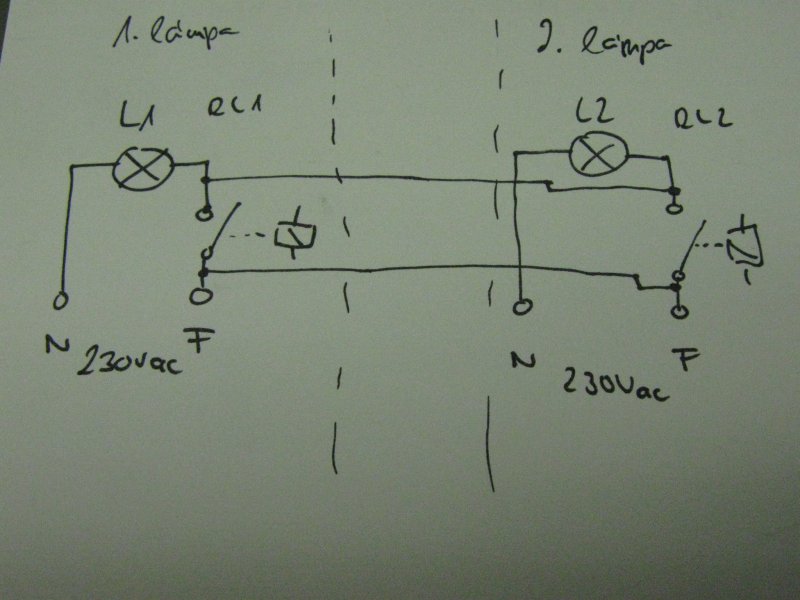 1. lámpa
2. lámpa
L1
RL1
L2
RL2
N
230Vac
F
N
230Vac
F